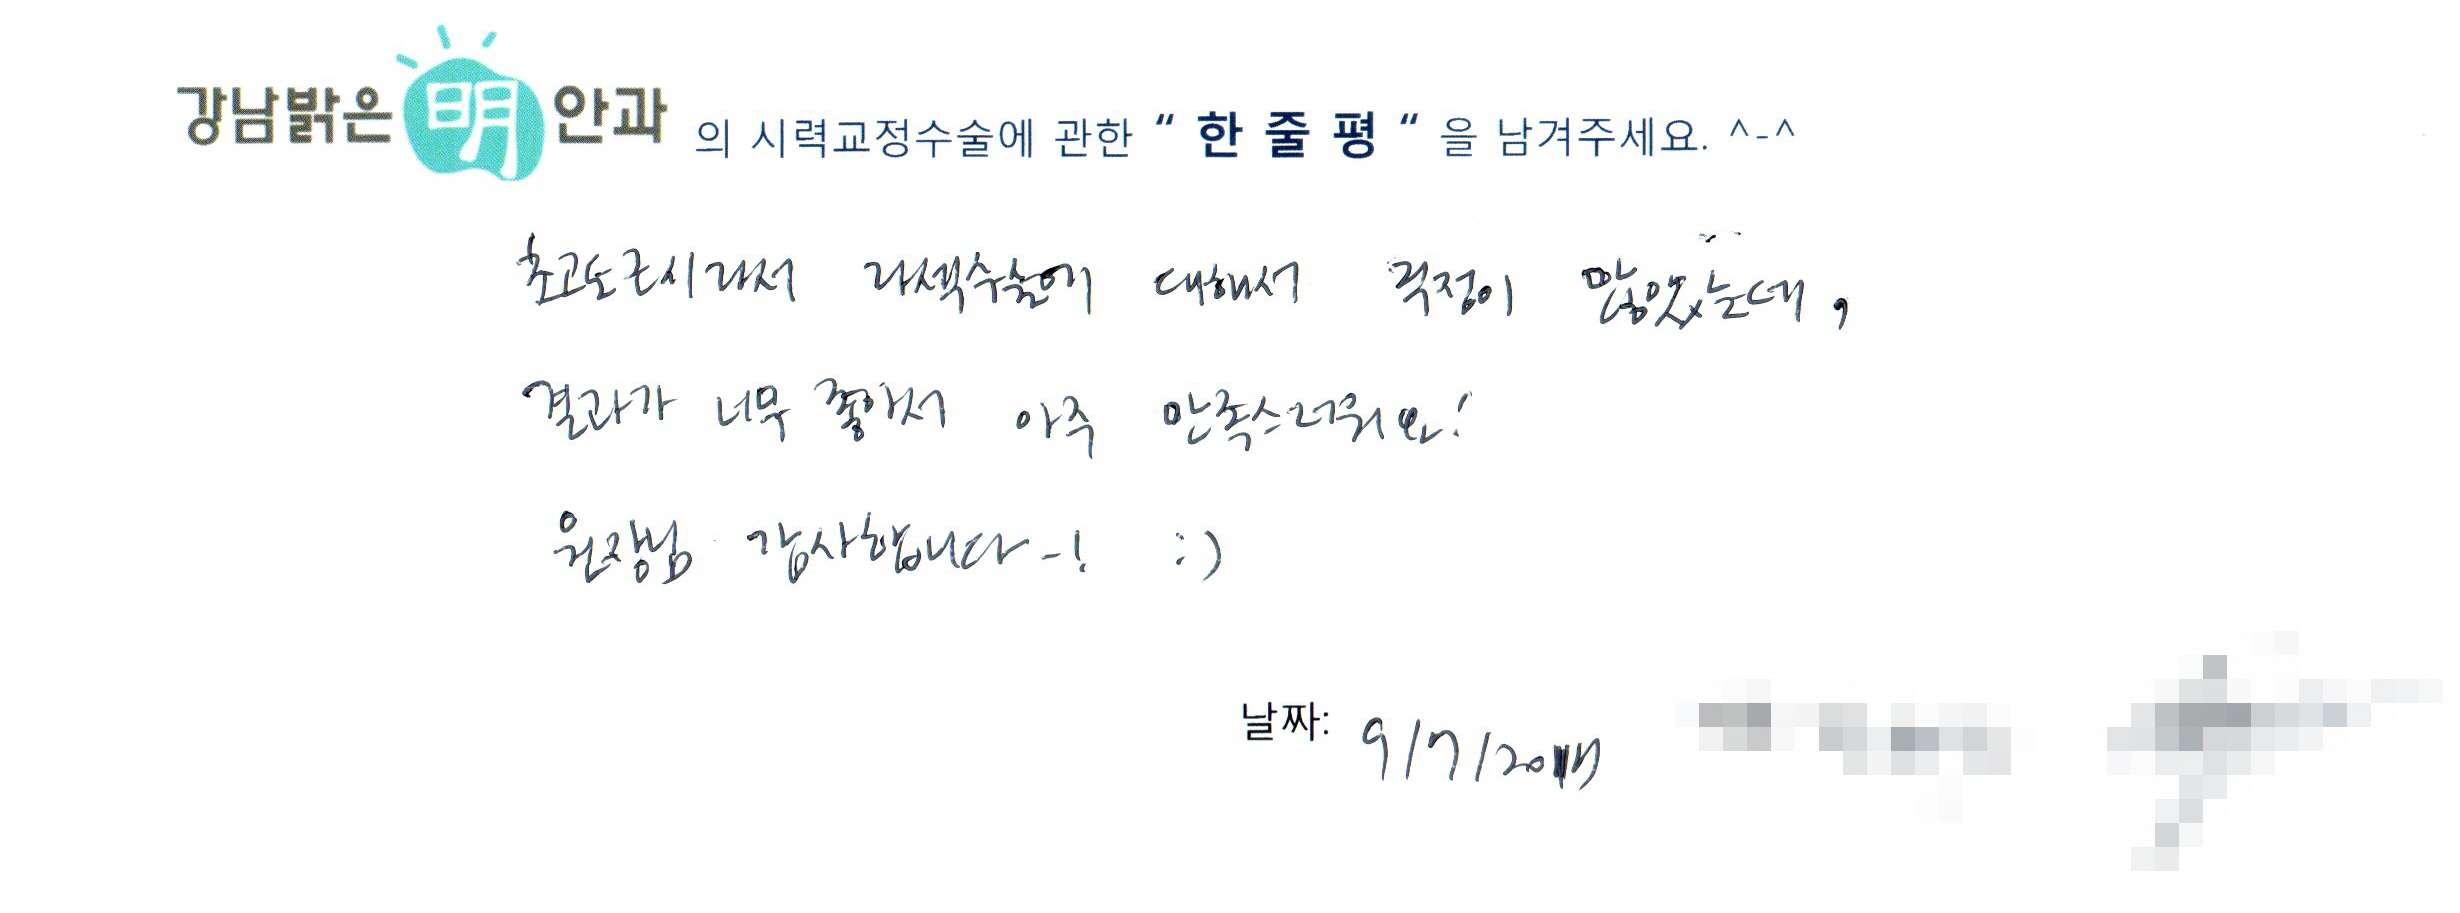 강남밝은明안과 의 시력교정수술에 관한 “ 한 줄 평 “ 을 남겨주세요. ^-^
초고도근시라서 라섹수술에 대해서 걱정이 많았는데,
결과가 너무 좋아서 아주 만족스러워요!
원장님 감사합니다-! :)
날짜: 9/7/20